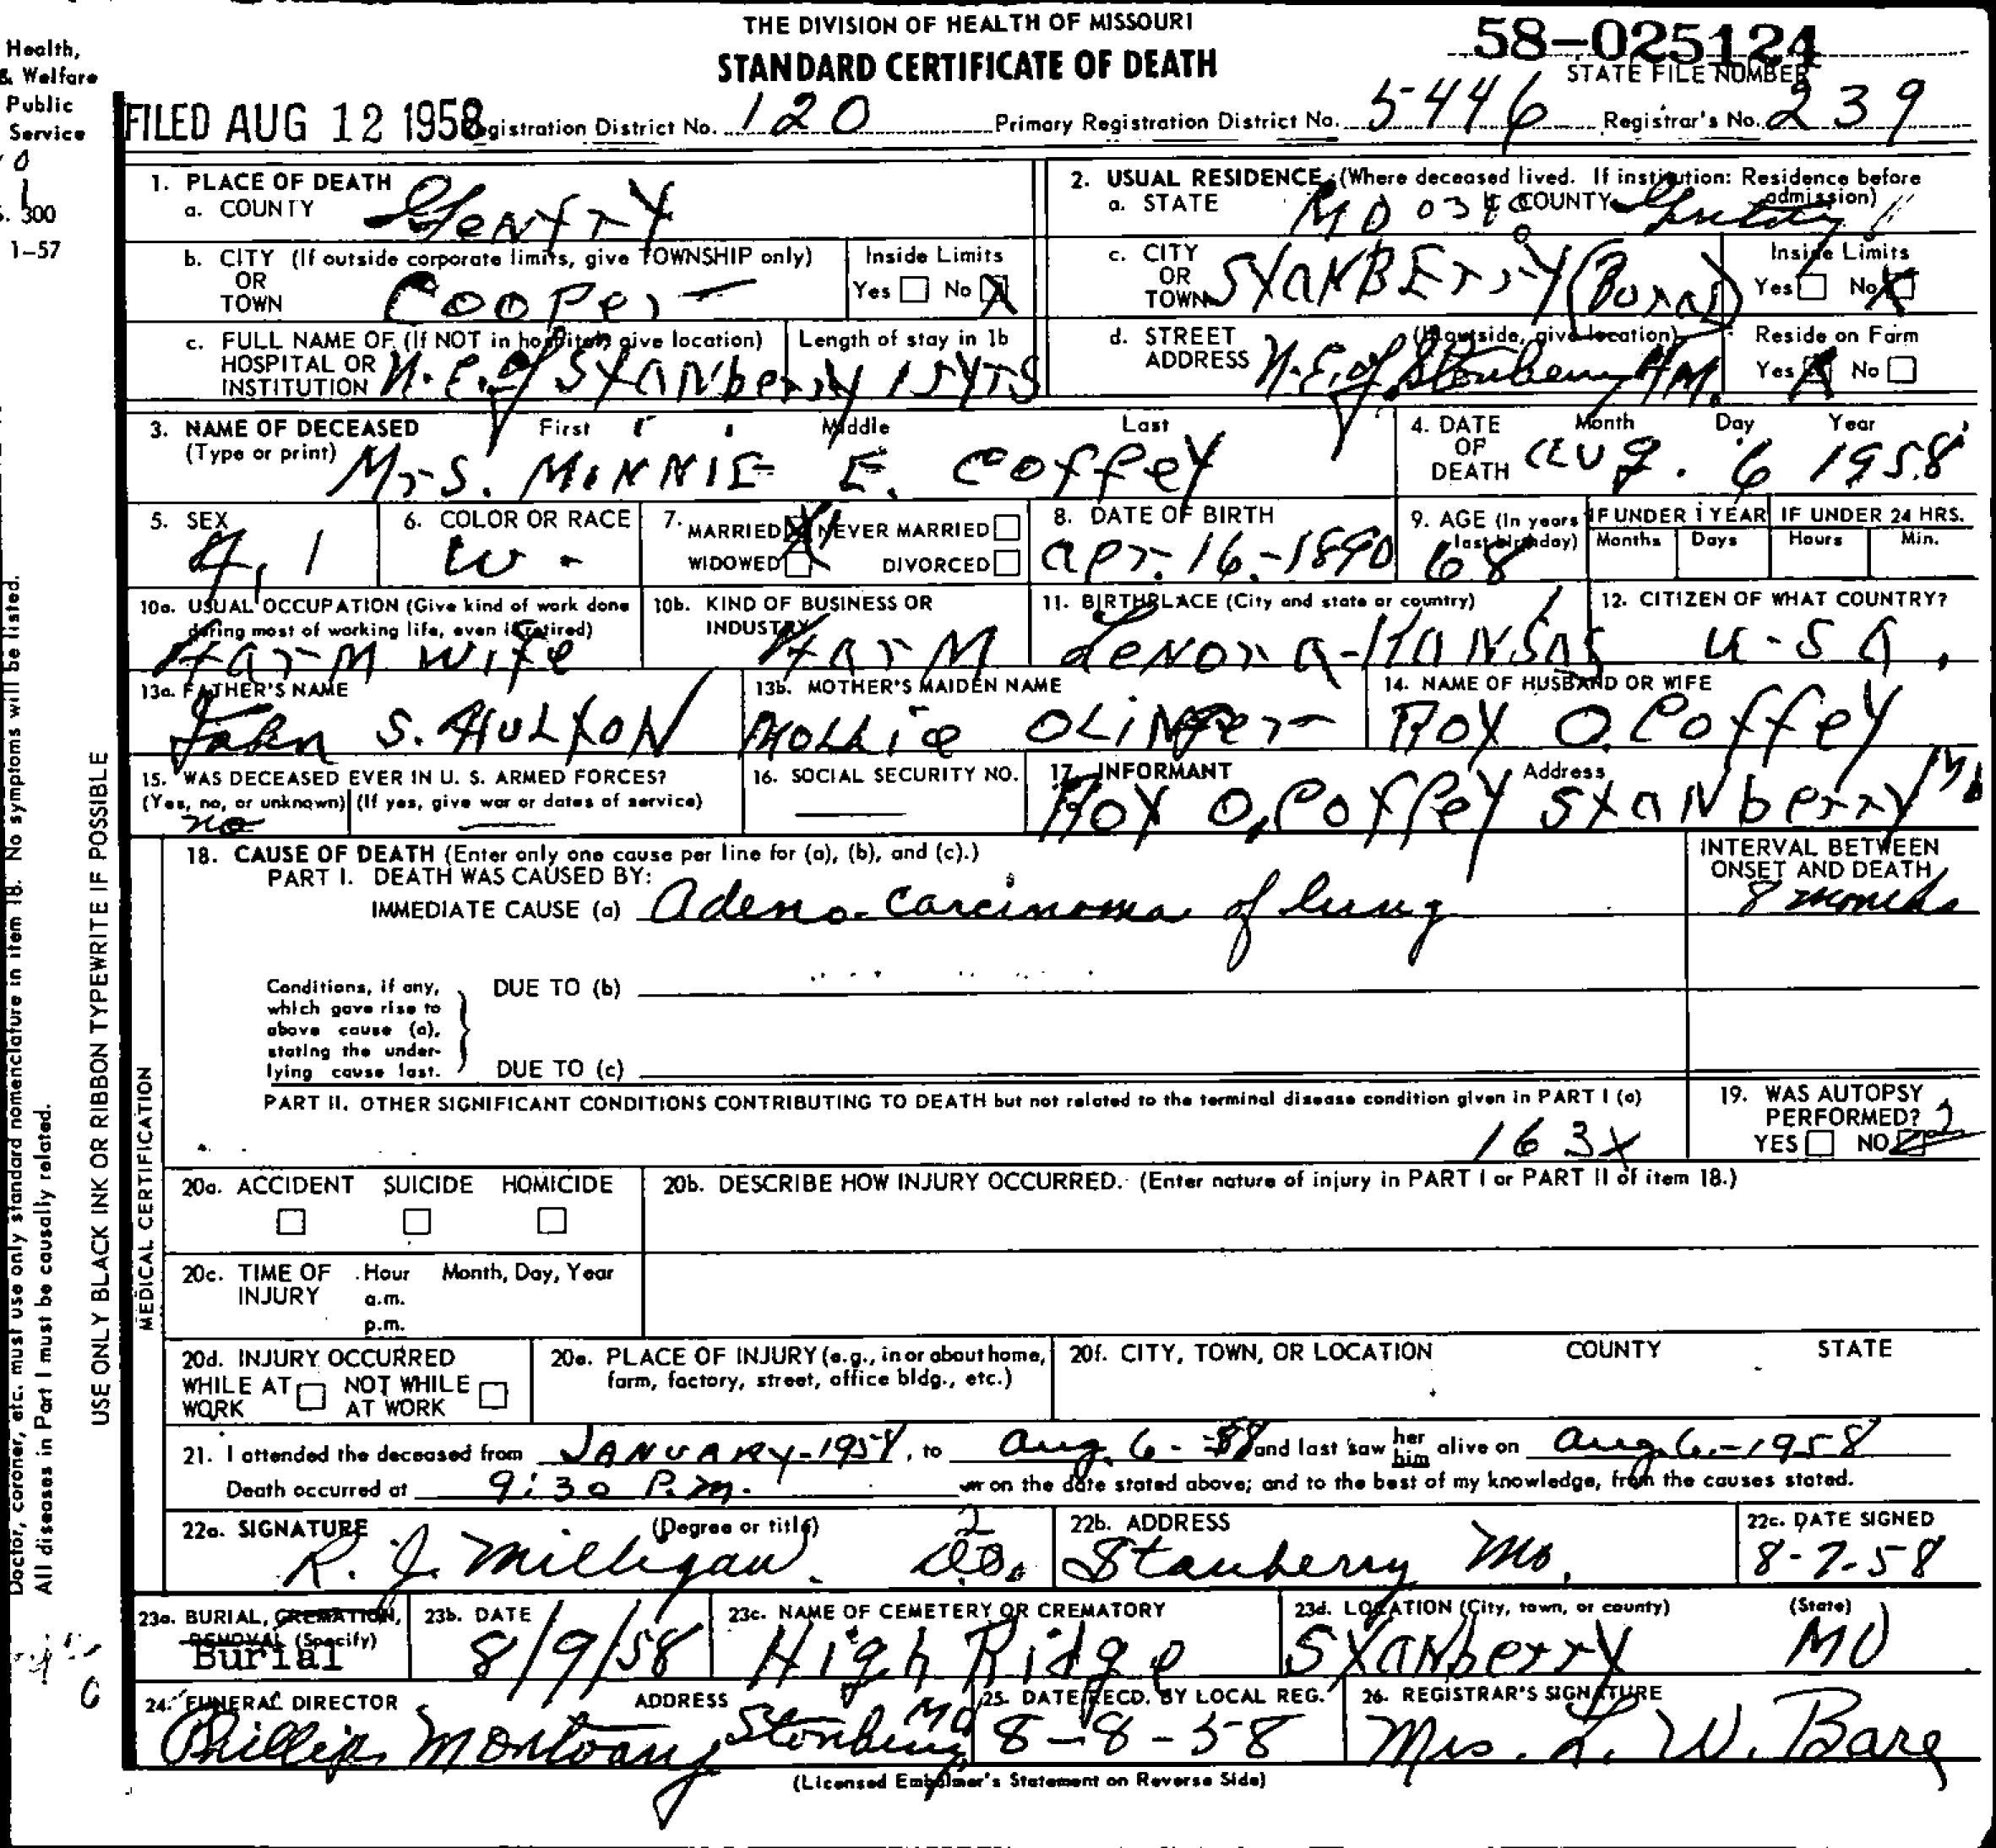 THE DIVISION OF HEALTH OF MISSOURI
STANDARD CERTIFICATE OF DEATH
58-025124
STATE FILE NUMBER
Health,
& Welfare
Public
Service
0
1
300
1-57
FILED AUG 12 1958 Registration District No. 120 Primary Registration District No. 5446 Registrar's No. 239
1. PLACE OF DEATH
a. COUNTY Gentry
2. USUAL RESIDENCE (Where deceased lived. If institution: Residence before admission)
a. STATE MO b. COUNTY Gentry
b. CITY (If outside corporate limits, give TOWNSHIP only)
OR
TOWN Cooper
Inside Limits
Yes No X
c. CITY
OR
TOWN STANBErry (Rural)
Inside Limits
Yes No X
c. FULL NAME OF (If NOT in hospital, give location)
HOSPITAL OR
INSTITUTION N.E. of STANberry
Length of stay in 1b
15 yrs
d. STREET
ADDRESS
(If outside, give location)
N.E. of Stanberry
Reside on Farm
Yes X No
3. NAME OF DECEASED
(Type or print)
First Middle Last
Mrs. MINNIE E. COffEY
4. DATE
OF
DEATH
Month Day Year
Aug. 6 1958
5. SEX
F, 1
6. COLOR OR RACE
W-
7. MARRIED X NEVER MARRIED
WIDOWED DIVORCED
8. DATE OF BIRTH
apr. 16-1890
9. AGE (In years last birthday)
68
IF UNDER 1 YEAR
Months Days
IF UNDER 24 HRS.
Hours Min.
10a. USUAL OCCUPATION (Give kind of work done
during most of working life, even if retired)
FarM wife
10b. KIND OF BUSINESS OR
INDUSTRY
FArM
11. BIRTHPLACE (City and state or country)
LeNora-KANSAS
12. CITIZEN OF WHAT COUNTRY?
U-S A.
13a. FATHER'S NAME
John S. HULTON
13b. MOTHER'S MAIDEN NAME
MOLLie OLiNger
14. NAME OF HUSBAND OR WIFE
ROY O. COffeY
15. WAS DECEASED EVER IN U. S. ARMED FORCES?
(Yes, no, or unknown) (If yes, give war or dates of service)
no
16. SOCIAL SECURITY NO.
17. INFORMANT Address
ROY O. COffeY STANberry Mo
18. CAUSE OF DEATH (Enter only one cause per line for (a), (b), and (c).)
PART I. DEATH WAS CAUSED BY:
IMMEDIATE CAUSE (a) Adeno-Carcinoma of lung
INTERVAL BETWEEN
ONSET AND DEATH
8 months
Conditions, if any,
which gave rise to
above cause (a),
stating the under-
lying cause last.
DUE TO (b)
DUE TO (c)
PART II. OTHER SIGNIFICANT CONDITIONS CONTRIBUTING TO DEATH but not related to the terminal disease condition given in PART I (a)
163X
19. WAS AUTOPSY
PERFORMED? 2
YES NO
20a. ACCIDENT SUICIDE HOMICIDE
20b. DESCRIBE HOW INJURY OCCURRED. (Enter nature of injury in PART I or PART II of item 18.)
20c. TIME OF INJURY
Hour Month, Day, Year
a.m.
p.m.
20d. INJURY OCCURRED
WHILE AT WORK NOT WHILE AT WORK
20e. PLACE OF INJURY (e.g., in or about home,
farm, factory, street, office bldg., etc.)
20f. CITY, TOWN, OR LOCATION COUNTY STATE
21. I attended the deceased from JANUARY-1958, to Aug. 6-58 and last saw her him alive on Aug. 6-1958
Death occurred at 9:30 P.m. on the date stated above; and to the best of my knowledge, from the causes stated.
22a. SIGNATURE (Degree or title)
R. J. Milligan. D.O. 2
22b. ADDRESS
Stanberry Mo.
22c. DATE SIGNED
8-7-58
23a. BURIAL, CREMATION,
REMOVAL (Specify)
Burial
23b. DATE
8/9/58
23c. NAME OF CEMETERY OR CREMATORY
High Ridge
23d. LOCATION (City, town, or county) (State)
STANberry MO
24. FUNERAL DIRECTOR ADDRESS
Phillip Mortuary Stanberry Mo
25. DATE RECD. BY LOCAL REG.
8-8-58
26. REGISTRAR'S SIGNATURE
Mrs. L. W. Bare
(Licensed Embalmer's Statement on Reverse Side)
Doctor, coroner, etc. must use only standard nomenclature in item 18. No symptoms will be listed.
All diseases in Part I must be causally related.
USE ONLY BLACK INK OR RIBBON TYPEWRITE IF POSSIBLE
MEDICAL CERTIFICATION